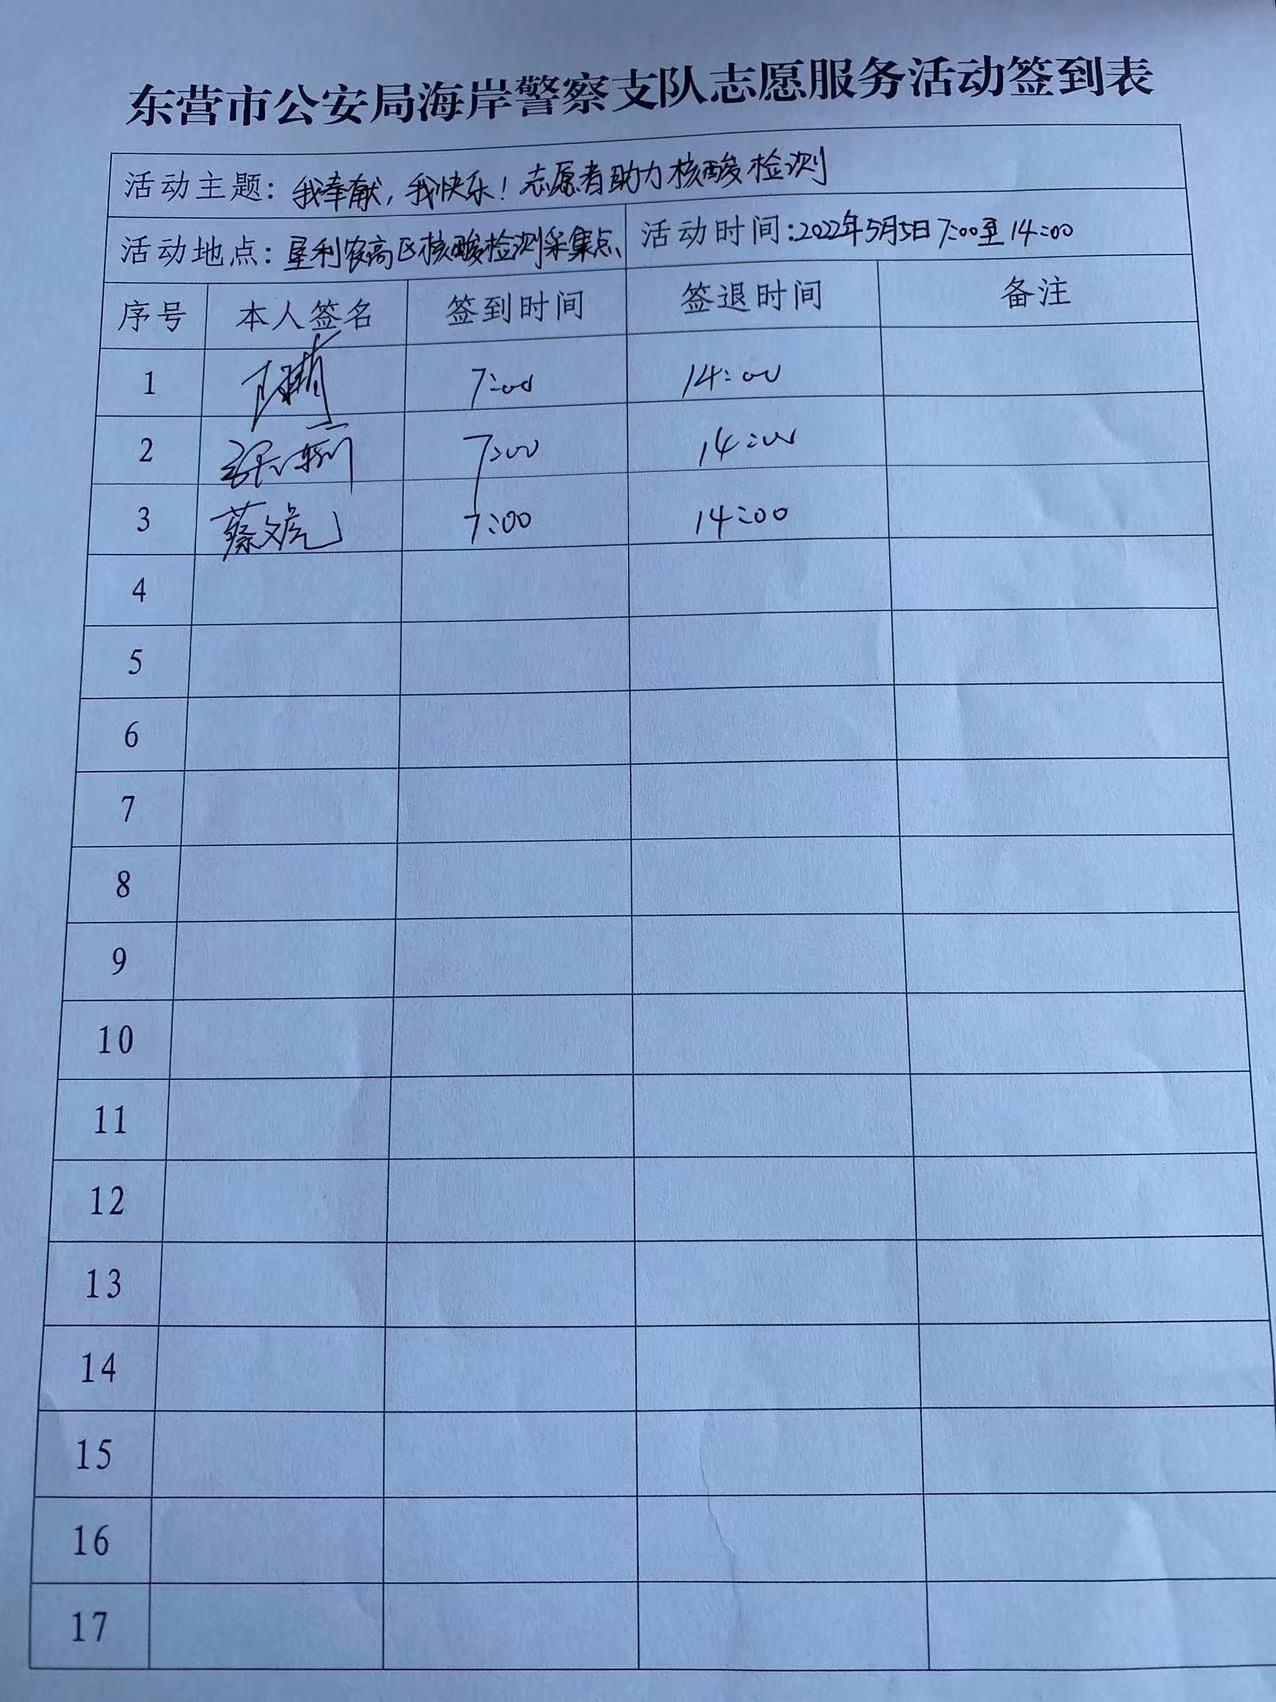 东营市公安局海岸警察支队志愿服务活动签到表
活动主题：我奉献，我快乐！志愿者助力核酸检测
活动地点：垦利农高区核酸检测采集点 活动时间：2022年5月5日7:00至14:00
序号 本人签名 签到时间 签退时间 备注
1 7:00 14:00
2 7:00 14:00
3 蔡文虎 7:00 14:00
4
5
6
7
8
9
10
11
12
13
14
15
16
17